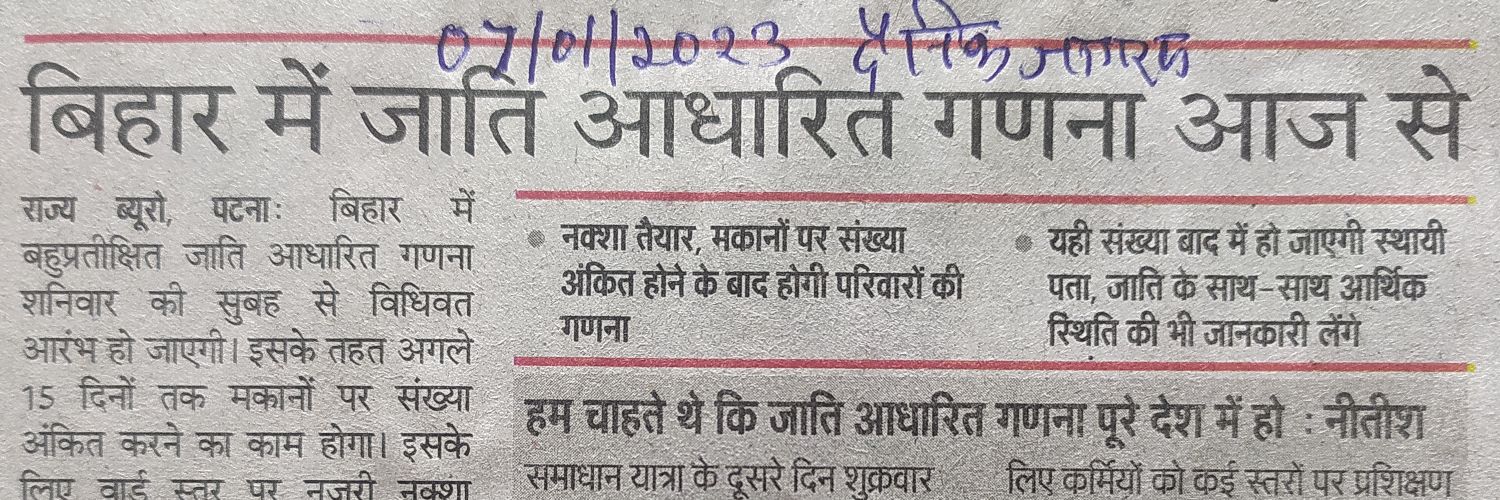 07/01/2023 दैनिक जागरण
बिहार में जाति आधारित गणना आज से
राज्य ब्यूरो, पटनाः बिहार में
बहुप्रतीक्षित जाति आधारित गणना
शनिवार की सुबह से विधिवत
आरंभ हो जाएगी। इसके तहत अगले
15 दिनों तक मकानों पर संख्या
अंकित करने का काम होगा। इसके
लिए वार्ड स्तर पर नजरी नक्शा
• नक्शा तैयार, मकानों पर संख्या
अंकित होने के बाद होगी परिवारों की
गणना
• यही संख्या बाद में हो जाएगी स्थायी
पता, जाति के साथ-साथ आर्थिक
स्थिति की भी जानकारी लेंगे
हम चाहते थे कि जाति आधारित गणना पूरे देश में हो : नीतीश
समाधान यात्रा के दूसरे दिन शुक्रवार
लिए कर्मियों को कई स्तरों पर प्रशिक्षण